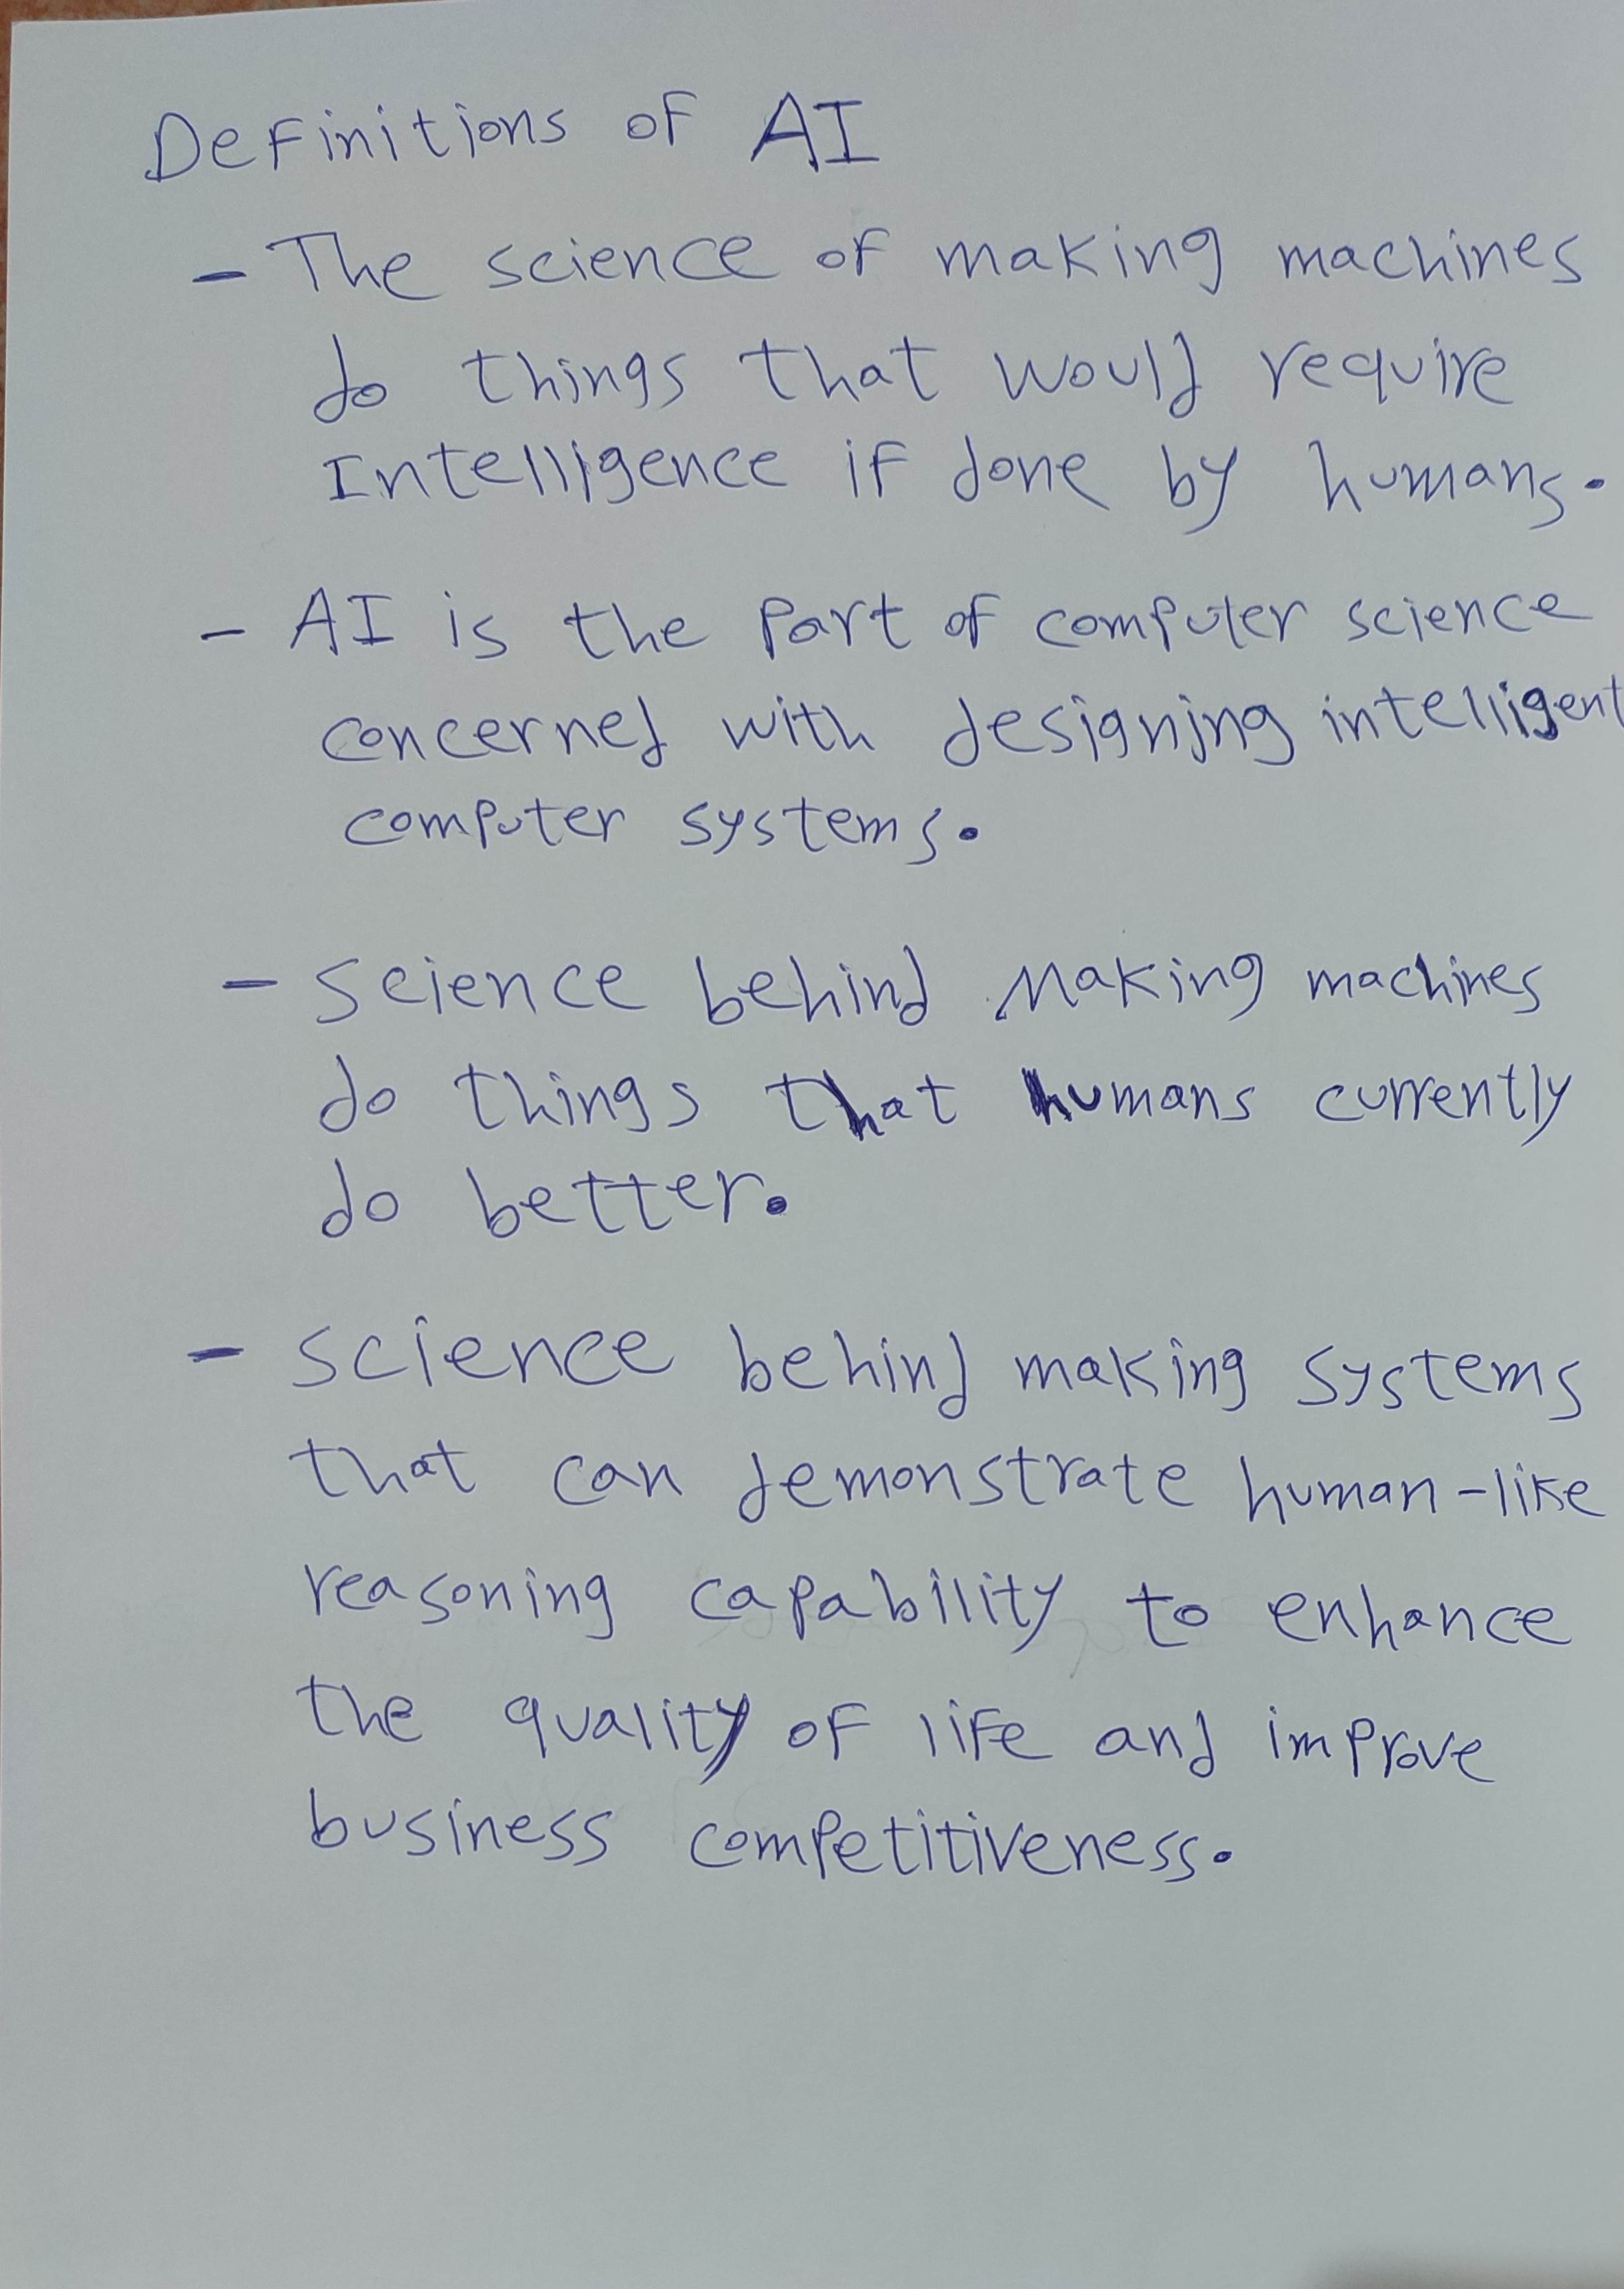 Definitions of AI
- The science of making machines
do things that would require
Intelligence if done by humans.
- AI is the part of computer science
concerned with designing intelligent
computer systems.
- science behind Making machines
do things that humans currently
do better.
- science behind making systems
that can demonstrate human-like
reasoning capability to enhance
the quality of life and improve
business competitiveness.